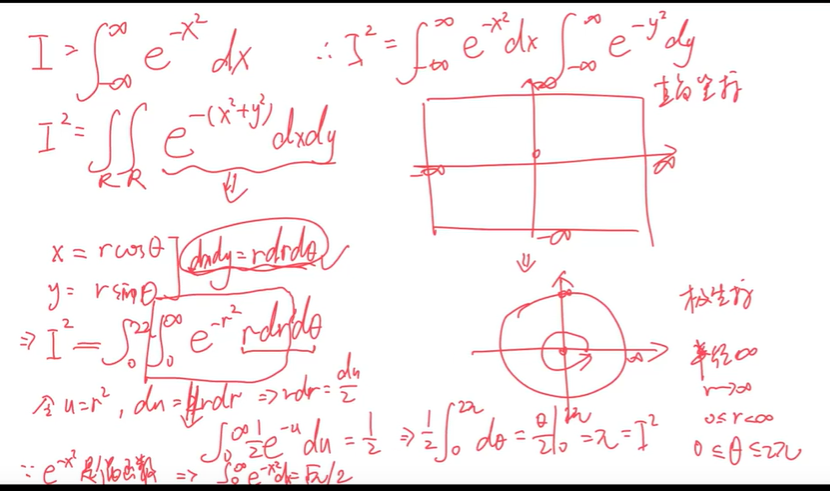 I = ∫_{-∞}^{∞} e^{-x²} dx ∴ I² = ∫_{-∞}^{∞} e^{-x²} dx ∫_{-∞}^{∞} e^{-y²} dy
直角坐标
I² = ∫∫_{R R} e^{-(x²+y²)} dxdy
∞
-∞ 0 ∞
-∞
⇓ ⇓
x = rcosθ
y = rsinθ
dxdy = rdrdθ
极坐标
∞
∞
半径∞
r→∞
0≤r<∞
0≤θ≤2π
⇒ I² = ∫_0^{2π} ∫_0^∞ e^{-r²} rdrdθ
令 u=r², du=2rdr ⇒ rdr = du/2
∫_0^∞ 1/2 e^{-u} du = 1/2 ⇒ 1/2 ∫_0^{2π} dθ = θ/2 |_0^{2π} = π = I²
∵ e^{-x²} 是偶函数 ⇒ ∫_0^∞ e^{-x²} dx = √π/2